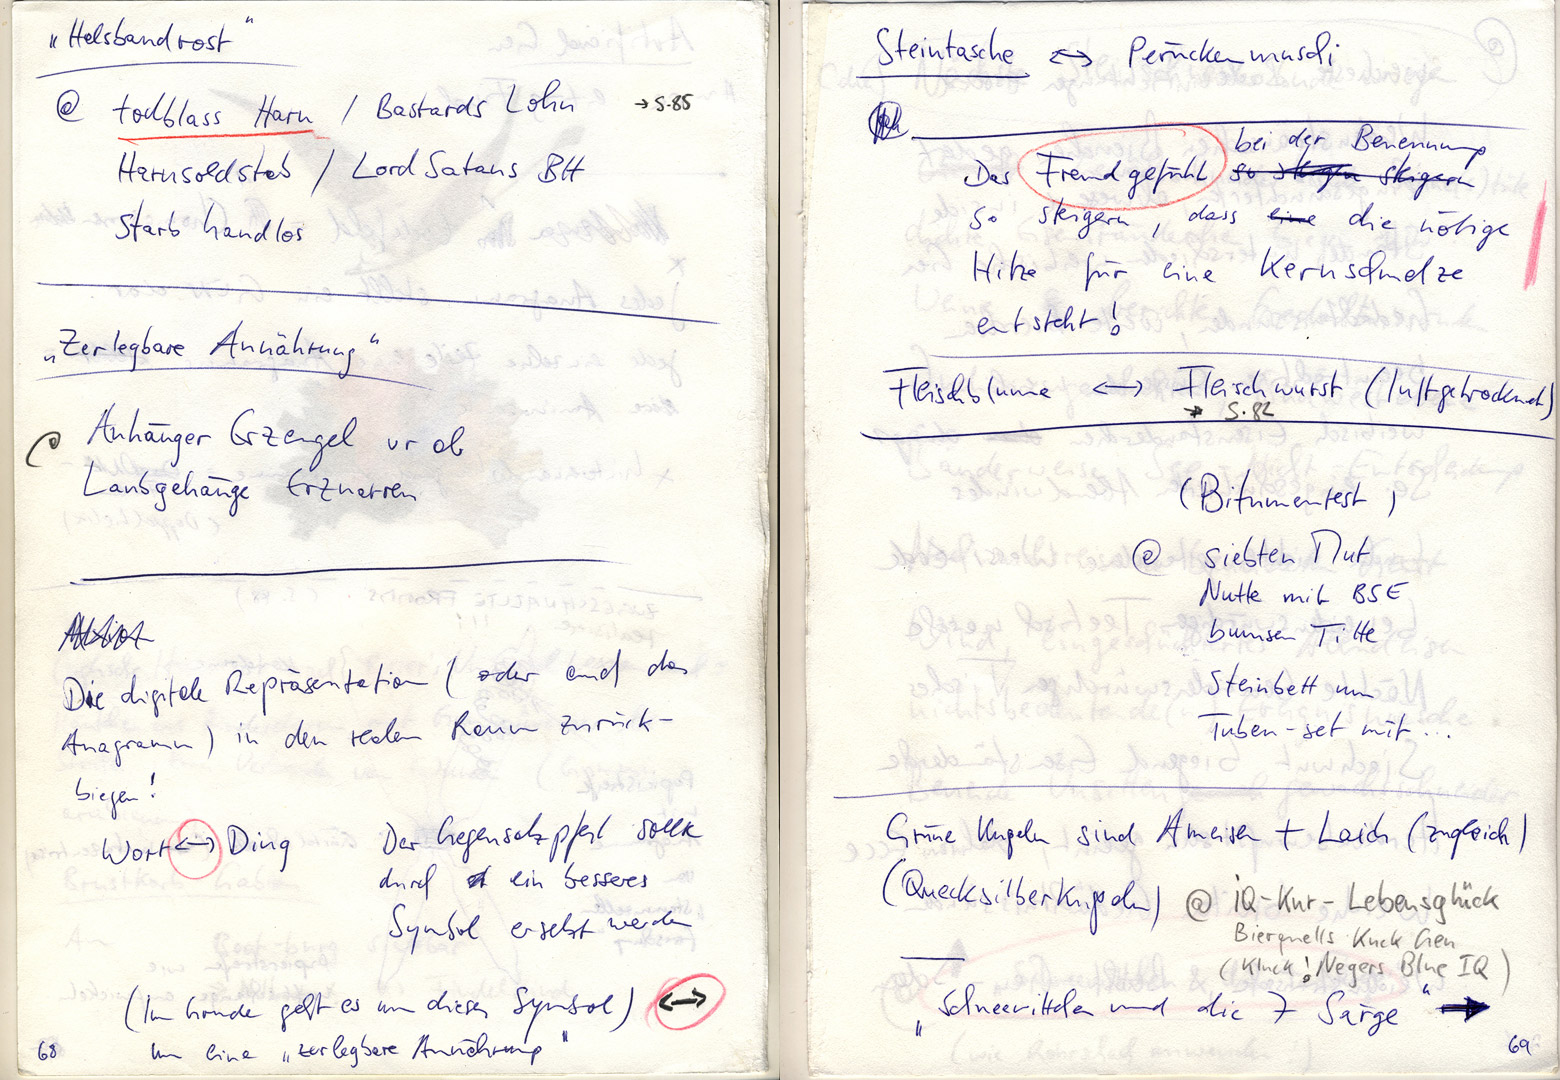 „Halsbandrost"
@ todblass Harn / Bastards Lohn → S. 85
Harnsoldstab / Lord Satans BH
Starb handlos
„Zerlegbare Annährung"
Anhänger Erzengel vr ob
Laubgehänge Erznarren
Die digitale Repräsentation (oder und das
Anagramm) in den realen Raum zurück-
biegen!
Wort ↔ Ding
Der Gegensatzpfeil sollte
durch ein besseres
Symbol ersetzt werden
(Im Grunde geht es um dieses Symbol) ↔
um eine „zerlegbare Annährung"
68
Steintasche ↔ Perückenmuschi
Das Fremdgefühl bei der Benennung
so steigern
so steigern, dass eine die nötige
Hitze für eine Kernschmelze
entsteht!
Fleischblume ↔ Fleischwurst (luftgetrocknet)
→ S. 82
(Bitumentest)
@ siebten Mut
Nutte mit BSE
bumsen Titte
Steinbett um
Tuben-set mit...
Grüne Kugeln sind Ameisen + Laich (zugleich)
(Quecksilberkugeln) @ iQ-Kur-Lebensglück
Bierquells Kuck Gen
(Kluck! Negers Blue IQ)
„Schneewittchen und die 7 Särge" →
69